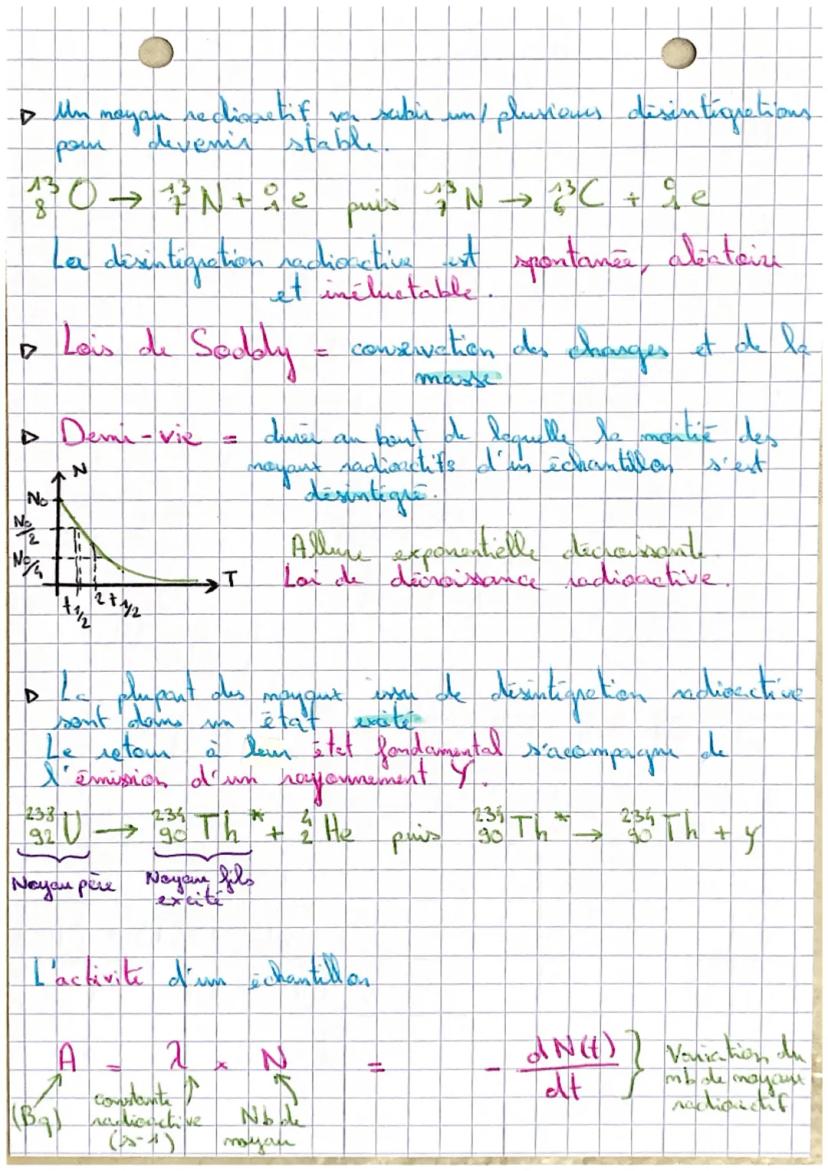 ▷ Un noyau radioactif va subir un/plusieurs désintégrations
pour devenir stable.
¹³₈O → ¹³₇N + ⁰₁e puis ¹³₇N → ¹³₆C + ⁰₁e
La désintégration radioactive est spontanée, aléatoire
et inéluctable.
▷ Lois de Soddy = conservation des charges et de la
masse
▷ Demi-vie = durée au bout de laquelle la moitié des
noyaux radioactifs d'un échantillon s'est
désintégré.
N
N₀
N₀/2
N₀/4
T
t1/2
2t1/2
Allure exponentielle décroissante
Loi de décroissance radioactive.
▷ La plupart des noyaux issu de désintégration radioactive
sont dans un état excité
Le retour à leur état fondamental s'acompagne de
l'émission d'un rayonnement γ.
²³⁸₉₂U → ²³⁴₉₀Th* + ⁴₂He puis ²³⁴₉₀Th* → ²³⁴₉₀Th + γ
Noyau père
Noyau fils
excité
L'activité d'un échantillon
A = λ × N = - dN(t)/dt } Variation du
nb de noyau
radioactif
(Bq)
constante
radioactive
(s-1)
Nb de
noyau